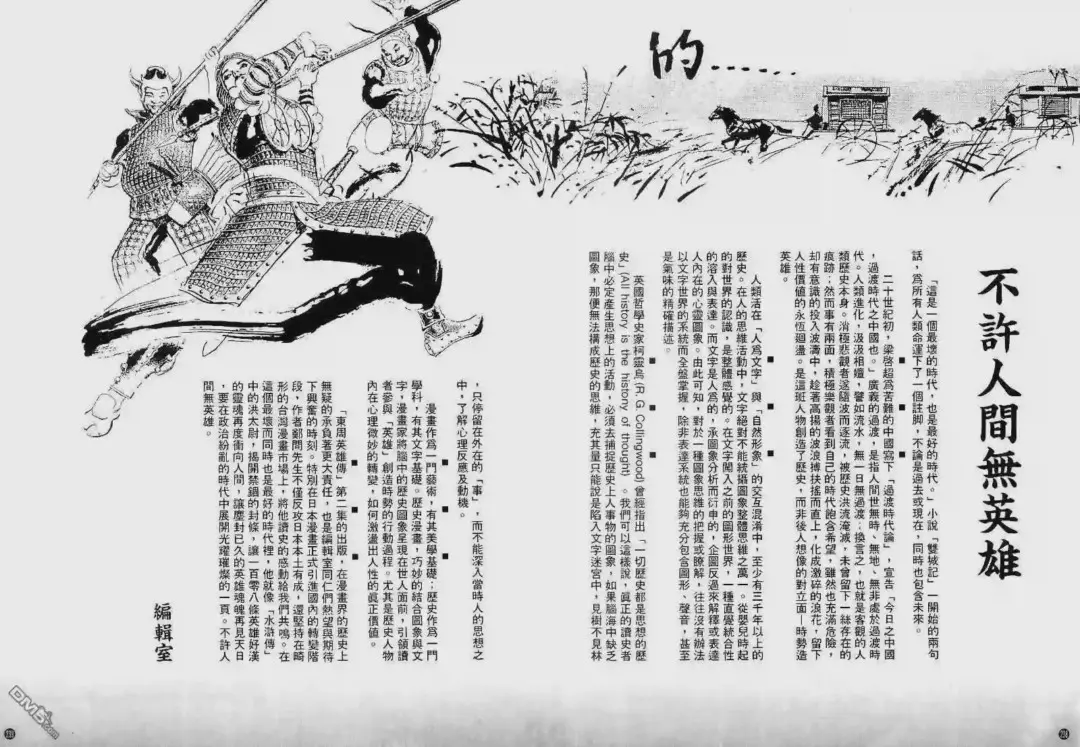 的……
不許人間無英雄
「這是一個最壞的時代，也是最好的時代。」小說「雙城記」一開始的兩句
話，為所有人類命運下了一個註脚，不論是過去或現在，同時也包含未來。
二十世紀初，梁啓超為苦難的中國寫下「過渡時代論」，宣告「今日之中國
，過渡時代之中國也。」廣義的過渡，是指人間世無時、無地、無非處於過渡時
代。人類進化，汲汲相嬗，譬如流水，無一日無過渡；換言之，也就是客觀的人
類歷史本身。消極悲觀者遂隨波而逐流，被歷史洪流淹滅，未曾留下一絲存在的
痕跡；然而事有兩面，積極樂觀者看到自己的時代飽含希望，雖然也充滿危險，
却有意識的投入波濤中，趁著高揚的波浪搏扶搖而直上，化成激碎的浪花，留下
人性價值的永恆迴盪。是這班人物創造了歷史，而非後人想像的對立面—時勢造
英雄。
人類活在「人為文字」與「自然形象」的交互混淆中，至少有三千年以上的
歷史。在人的思維活動中，文字絕對不能統攝圖象整體思維之萬一。從嬰兒時起
的對世界的認識，是整體感覺的。在文字闖入之前的圖形世界，一種直覺統合性
的溶入與表達。而文字是人為的，承圖象分析而衍中的，企圖反過來解釋或表達
人內在的心靈圖象。由此可知，對於一種圖象思維的把握或瞭解，往往沒有辦法
以文字世界的系統而全盤掌握，除非表達系統也能夠充分包含圖形、聲音，甚至
是氣味的精確描述。
英國哲學史家柯靈烏(R. G. Collingwood)曾經指出「一切歷史都是思想的歷
史」(All history is the history of thought)。我們可以這樣說，眞正的讀史者
腦中必定產生思想上的活動，必須去捕捉歷史上人事物的圖象，如果腦海中缺乏
圖象，那便無法構成歷史的思維，充其量只能說是陷入文字迷宮中，見樹不見林
，只停留在外在的「事」，而不能深入當時人的思想之
中，了解心理反應及動機。
漫畫作為一門藝術，有其美學基礎；歷史作為一門
學科，有其文字基礎。歷史漫畫，巧妙的結合圖象與文
字，漫畫家將腦中的歷史圖象呈現在世人面前，引領讀
者參與「英雄」創造時勢的行動過程。尤其是歷史人物
內在心理微妙的轉變，如何激盪出人性的眞正價值。
「東周英雄傳」第二集的出版，在漫畫界的歷史上
無疑的承負著更大責任，也是編輯室同仁們熱望與期待
下興奮的時刻。特別在日本漫畫正式引進國內的轉變階
段，作者鄭問先生不僅反攻日本本土有成，還堅持在畸
形的台灣漫畫市場上，將他讀史的感動給我們共鳴。在
這個最壞而同時也是最好的時代裡，他就像「水滸傳」
中的洪太尉，揭開禁錮的封條，讓一百零八條英雄好漢
的靈魂再度衝向人間，讓塵封已久的英雄魂魄再見天日
，要在政治紛亂的時代中展開光耀璀燦的一頁。不許人
間無英雄。
編輯室
DM5.com